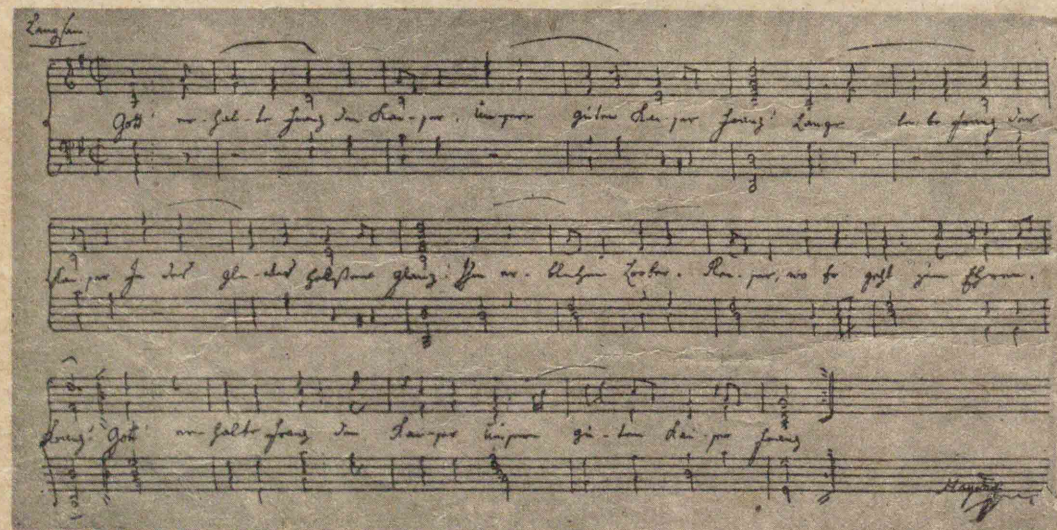 Langsam.
Gott! er-hal-te Franz den Kai-ser, unsern guten Kai-ser Franz! Lange le-be Franz der
Kai-ser In des Glü-ckes Glanz! Ihm er-blühen Lorber-Rei-ser, wo er geht zum Ehren-
kranz! Gott! er-halte Franz den Kai-ser unsern gu-ten Kai-ser Franz
Haydn